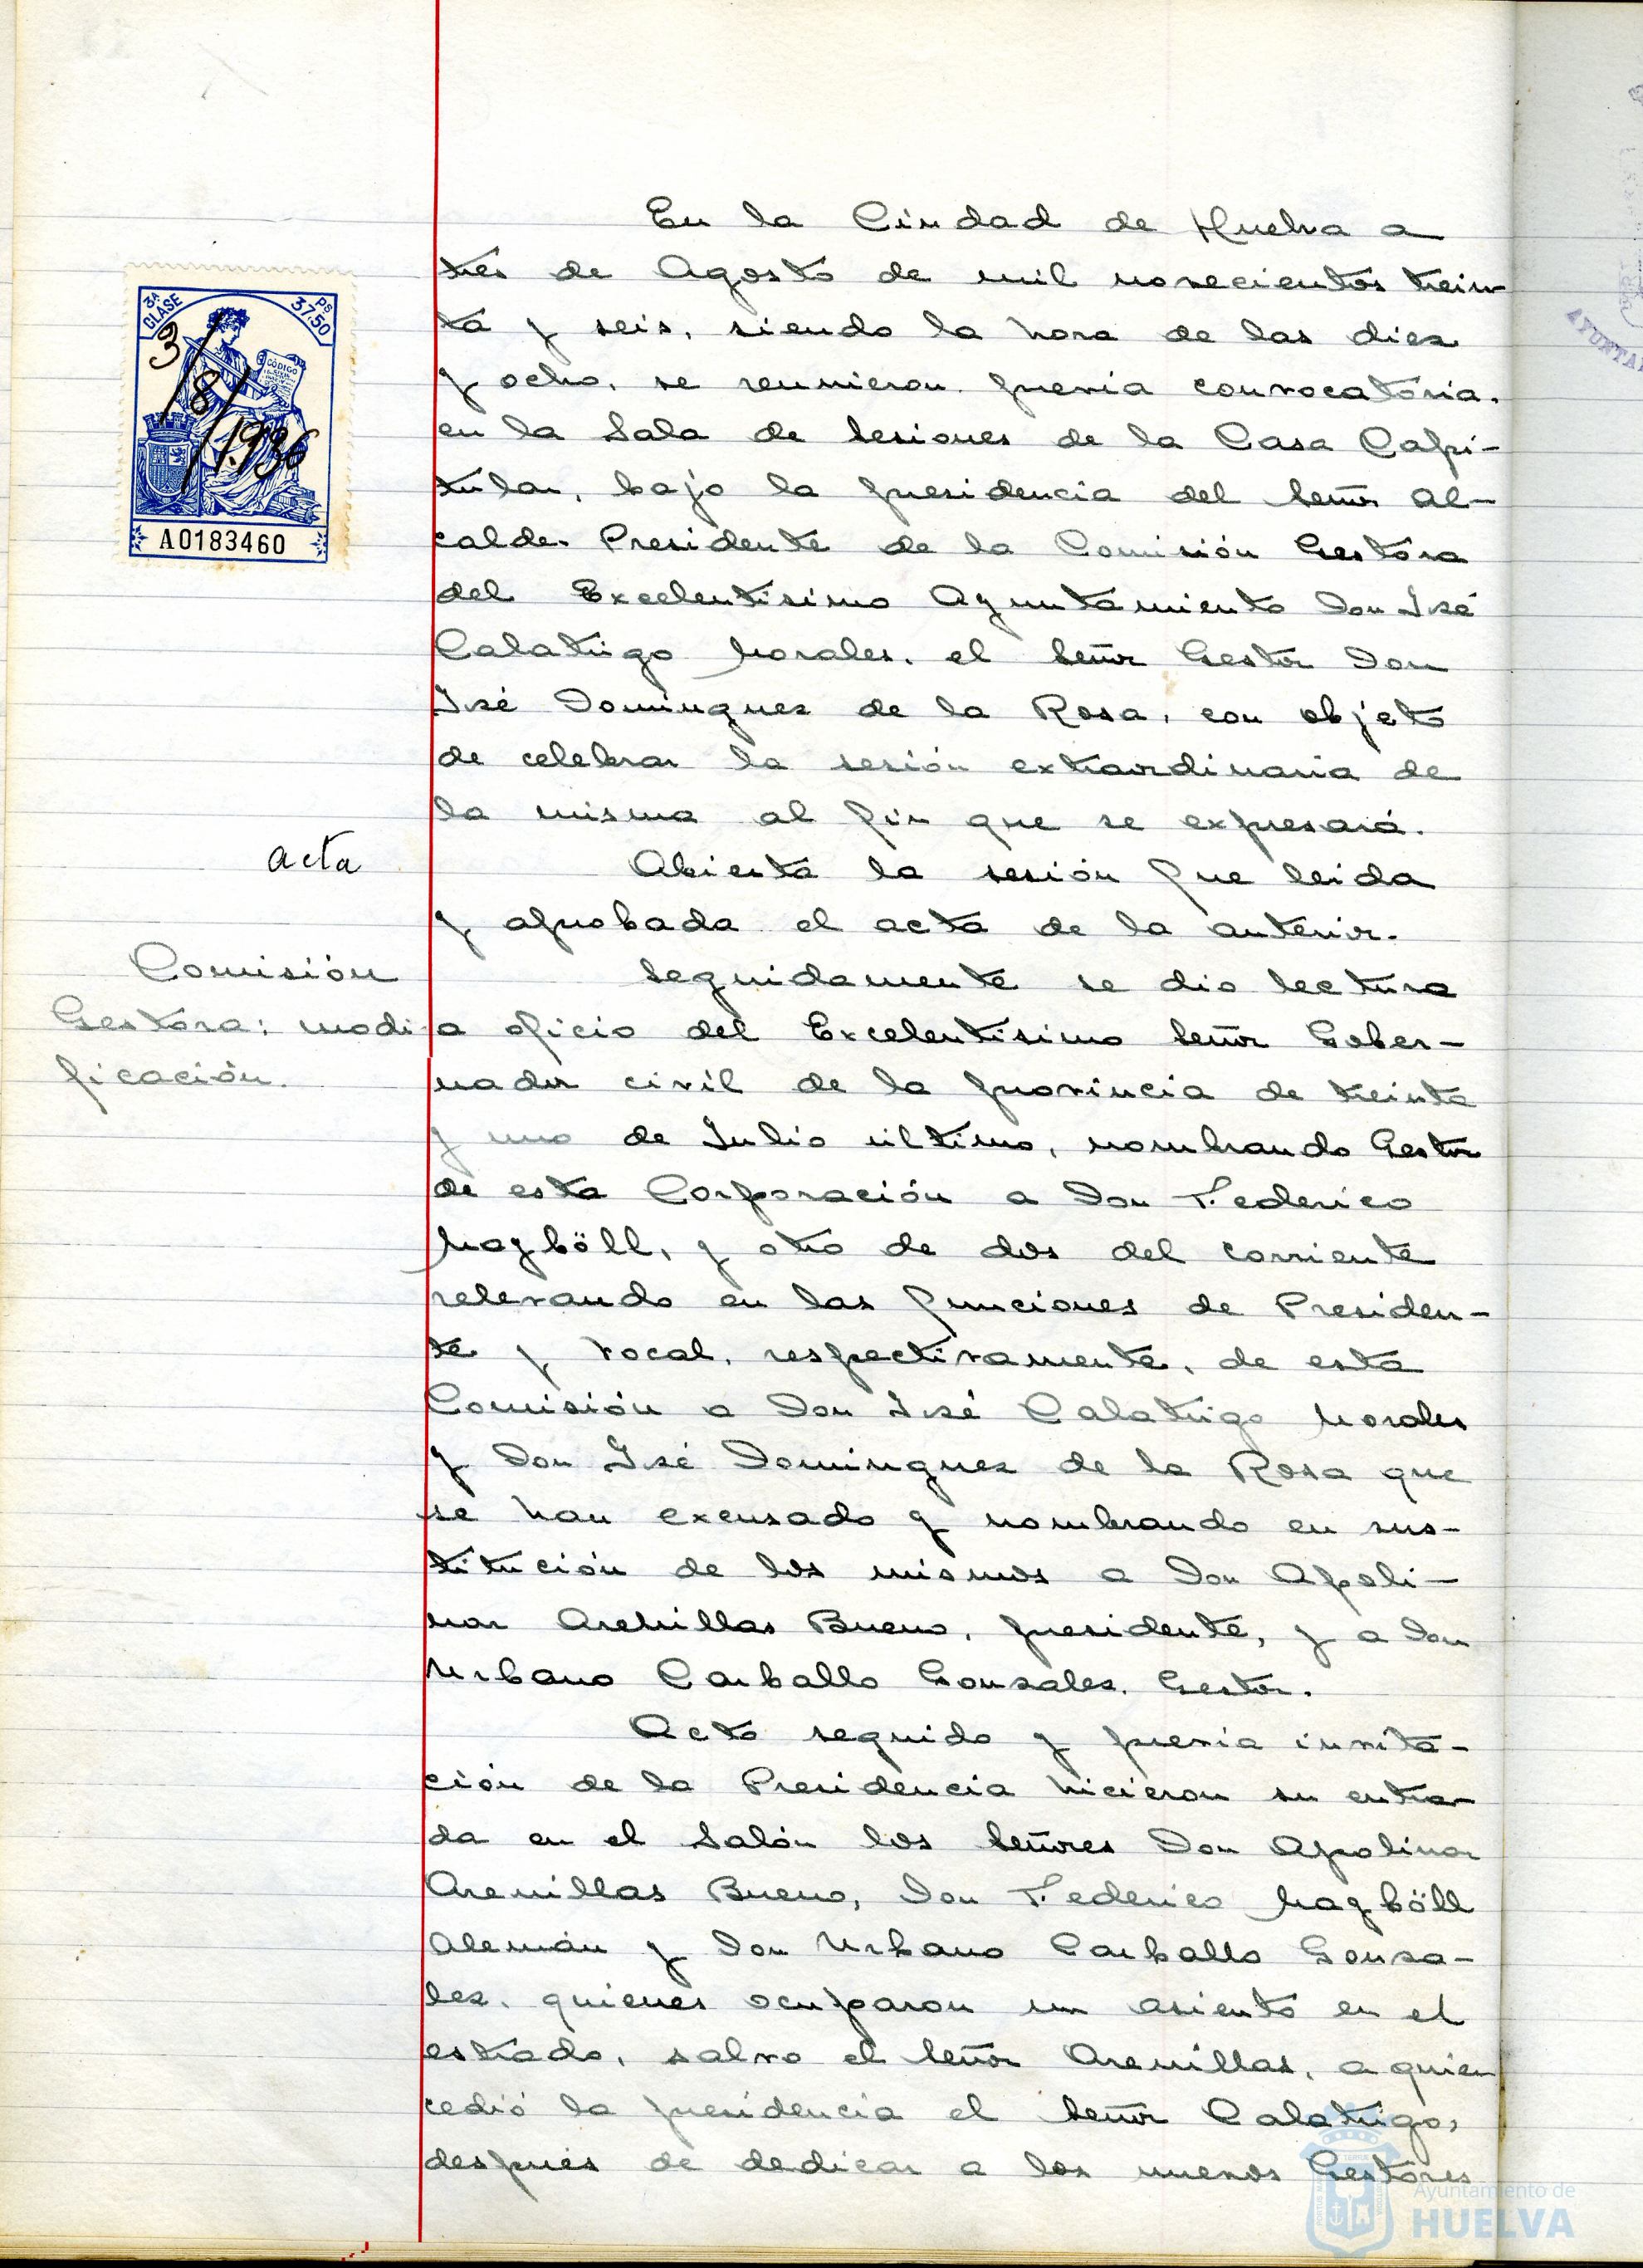 En la Ciudad de Huelva a
tres de Agosto de mil novecientos trein-
ta y seis, siendo la hora de las diez
y ocho, se reunieron, previa convocatoria,
en la Sala de Sesiones de la Casa Capi-
tular, bajo la presidencia del Señor Al-
calde-Presidente de la Comisión Gestora
del Excelentísimo Ayuntamiento Don José
Calatrigo Morales, el Señor Gestor Don
José Dominguez de la Rosa, con objeto
de celebrar la sesión extraordinaria de
la misma al fin que se expresará.
3ª CLASE
37'50 Ps
CÓDIGO
3/8/1.936
A0183460
acta
Abierta la sesión fue leida
y aprobada el acta de la anterior.
Comisión
Gestora; modi
ficación.
Seguidamente se dio lectura
a oficio del Excelentísimo Señor Gober-
nador civil de la provincia de treinta
y uno de Julio último, nombrando Gestor
de esta Corporación a Don Federico
Mayböll, y otro de dos del corriente
relevando en las funciones de Presiden-
te y Vocal, respectivamente, de esta
Comisión a Don José Calatrigo Morales
y Don José Dominguez de la Rosa que
se han excusado y nombrando en sus-
titución de los mismos a Don Apoli-
nar Arenillas Bueno, presidente, y a Don
Urbano Carballo Gonzalez, Gestor.
Acto seguido y previa invita-
ción de la Presidencia hicieron su entra-
da en el Salón los Señores Don Apolinar
Arenillas Bueno, Don Federico Mayböll
Alemán y Don Urbano Carballo Gonza-
lez, quienes ocuparon un asiento en el
estrado, salvo el Señor Arenillas, a quien
cedió la presidencia el Señor Calatrigo,
despues de dedicar a los nuevos Gestores
Ayuntamiento de
HUELVA